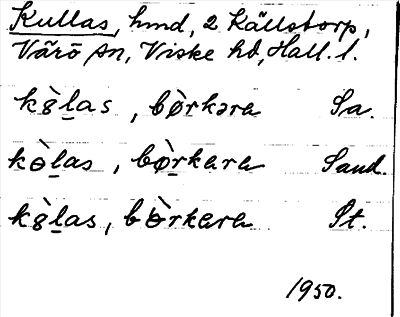 Kullas, hmd, 2 Källstorp,
Värö sn, Viske hd, Hall. l.
k8̀l̠as, bø̀rkəra Sa.
kɵ̀l̠as, bø̠̀rkara Sand.
k8̀l̠as, bɵ̀rkara St.
1950.